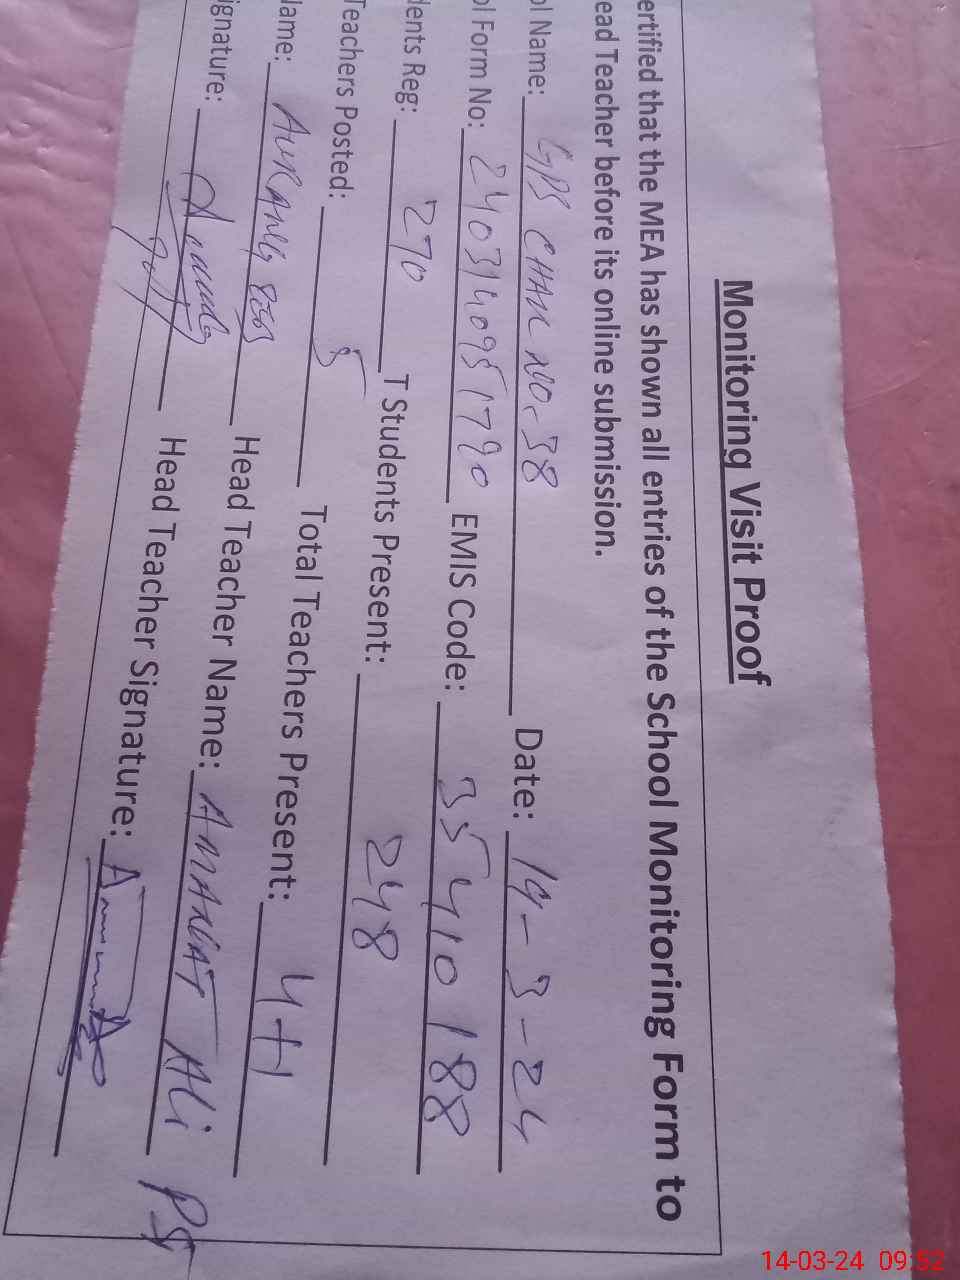 Monitoring Visit Proof
ertified that the MEA has shown all entries of the School Monitoring Form to
ead Teacher before its online submission.
ol Name: GPS CHAK NO. 38 Date: 14-3-24
ol Form No: 2403140951790 EMIS Code: 35410188
dents Reg: 270 T Students Present: 248
Teachers Posted: 5 Total Teachers Present: 4+1
Name: AURANG Head Teacher Name: AMANAT ALi
ignature: Head Teacher Signature:
14-03-24 09:52